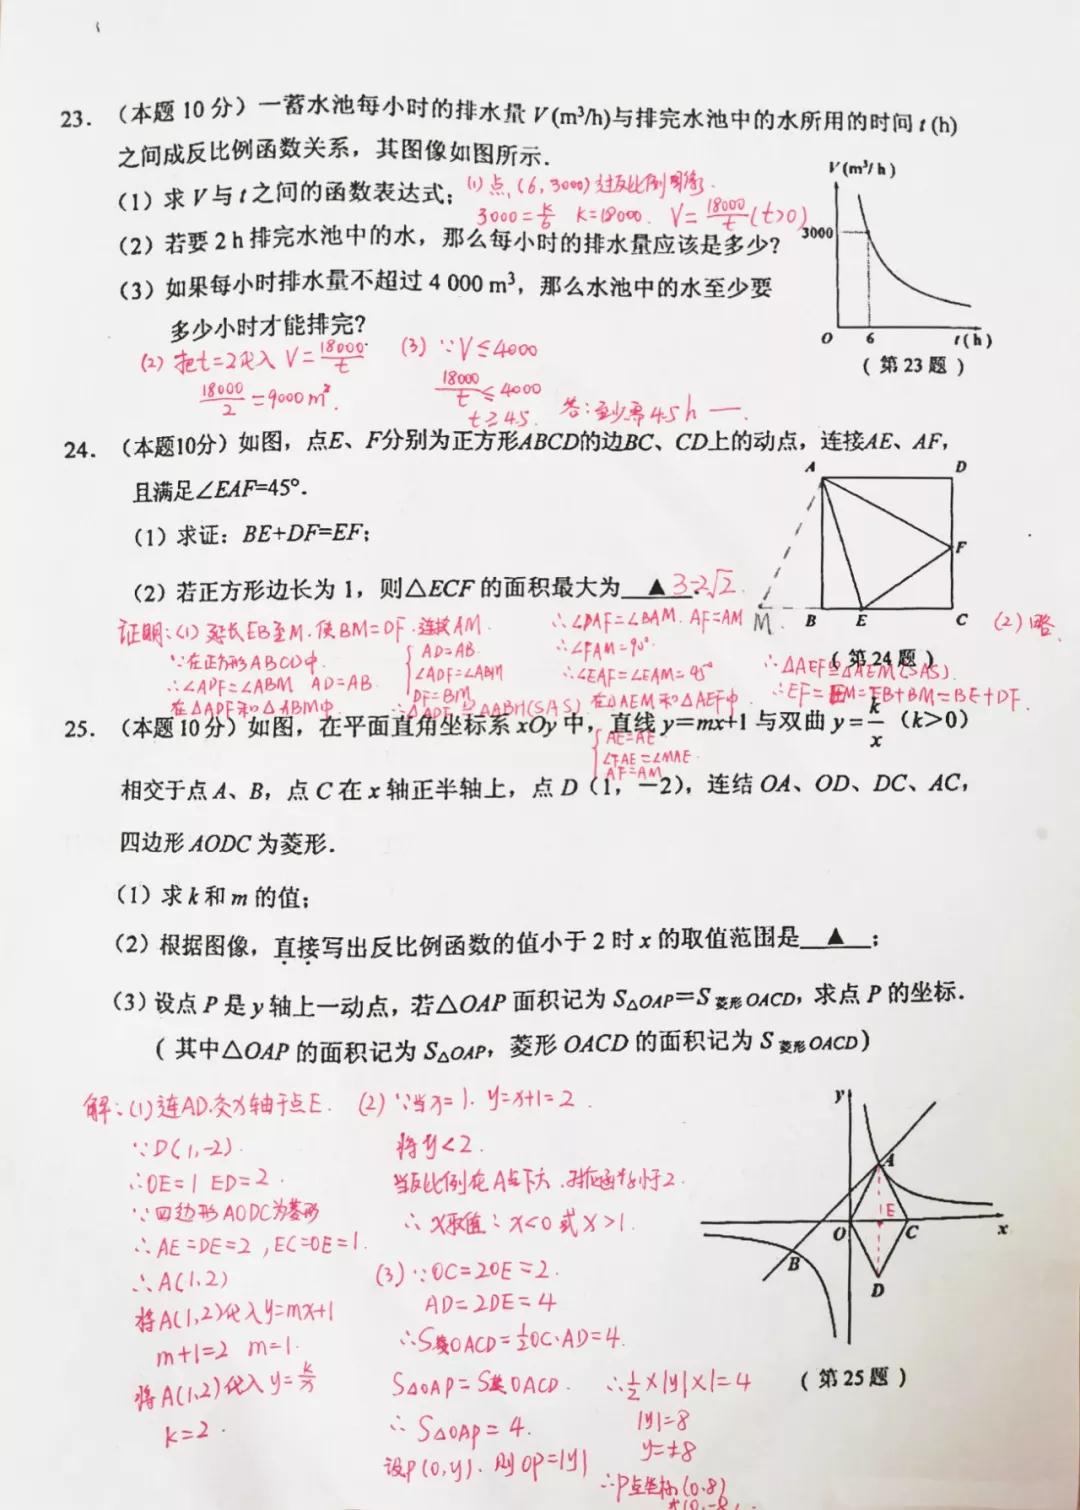 23. （本题 10 分）一蓄水池每小时的排水量 V (m³/h)与排完水池中的水所用的时间 t (h)
之间成反比例函数关系，其图像如图所示.
（1）求 V 与 t 之间的函数表达式；
(1) 点 (6, 3000) 过反比例图像.
3000 = k/6 k=18000. V = 18000/t (t>0)
（2）若要 2 h 排完水池中的水，那么每小时的排水量应该是多少？
（3）如果每小时排水量不超过 4 000 m³，那么水池中的水至少要
多少小时才能排完？
V (m³/ h)
3000
O 6 t (h)
（第 23 题）
(2) 把t=2代入 V = 18000/t
18000/2 = 9000 m³.
(3) ∵V≤4000
18000/t ≤ 4000
t≥4.5. 答：至少需4.5h 一.
24. （本题10分）如图，点E、F分别为正方形ABCD的边BC、CD上的动点，连接AE、AF，
且满足∠EAF=45°.
（1）求证：BE+DF=EF；
（2）若正方形边长为 1，则△ECF 的面积最大为 ▲ 3-2√2.
A D
F
M B E C
（第 24 题）
(2) 略
证明：(1) 延长EB至M. 使BM=DF. 连接AM.
∵在正方形ABCD中.
∴∠ADF=∠ABM AD=AB.
在△ADF和△ABM中.
AD=AB.
∠ADF=∠ABM
DF=BM
∴△ADF≌△ABM(SAS)
∴∠DAF=∠BAM. AF=AM
∴∠FAM=90°.
∴∠EAF=∠EAM=45°
在△AEM和△AEF中.
AE=AE
∠FAE=∠MAE
AF=AM
∴△AEF≌△AEM(SAS)
∴EF=EM=EB+BM=BE+DF.
25. （本题 10 分）如图，在平面直角坐标系 xOy 中，直线 y=mx+1 与双曲 y = k/x （k>0）
相交于点 A、B，点 C 在 x 轴正半轴上，点 D（1，−2），连结 OA、OD、DC、AC，
四边形 AODC 为菱形.
（1）求 k 和 m 的值；
（2）根据图像，直接写出反比例函数的值小于 2 时 x 的取值范围是 ▲ ；
（3）设点 P 是 y 轴上一动点，若△OAP 面积记为 S△OAP=S 菱形 OACD，求点 P 的坐标.
（其中△OAP 的面积记为 S△OAP，菱形 OACD 的面积记为 S 菱形 OACD）
解：(1) 连AD.交X轴于点E.
∵D(1,-2).
∴OE=1 ED=2.
∵四边形AODC为菱形
∴AE=DE=2, EC=OE=1.
∴A(1,2)
将A(1,2)代入y=mx+1
m+1=2 m=1.
将A(1,2)代入y=k/x
k=2.
(2) ∵当x=1. y=x+1=2.
将y<2.
∴X取值：x<0或x>1.
(3) ∵OC=2OE=2.
AD=2DE=4
∴S菱OACD=½OC·AD=4.
S△OAP=S菱OACD.
∴S△OAP=4.
设P(0,y). 则OP=|y|
∴½×|y|×1=4
|y|=8
y=±8
∴P点坐标(0,8)
或(0,-8).
y
A
E
O C x
B
D
（第 25 题）